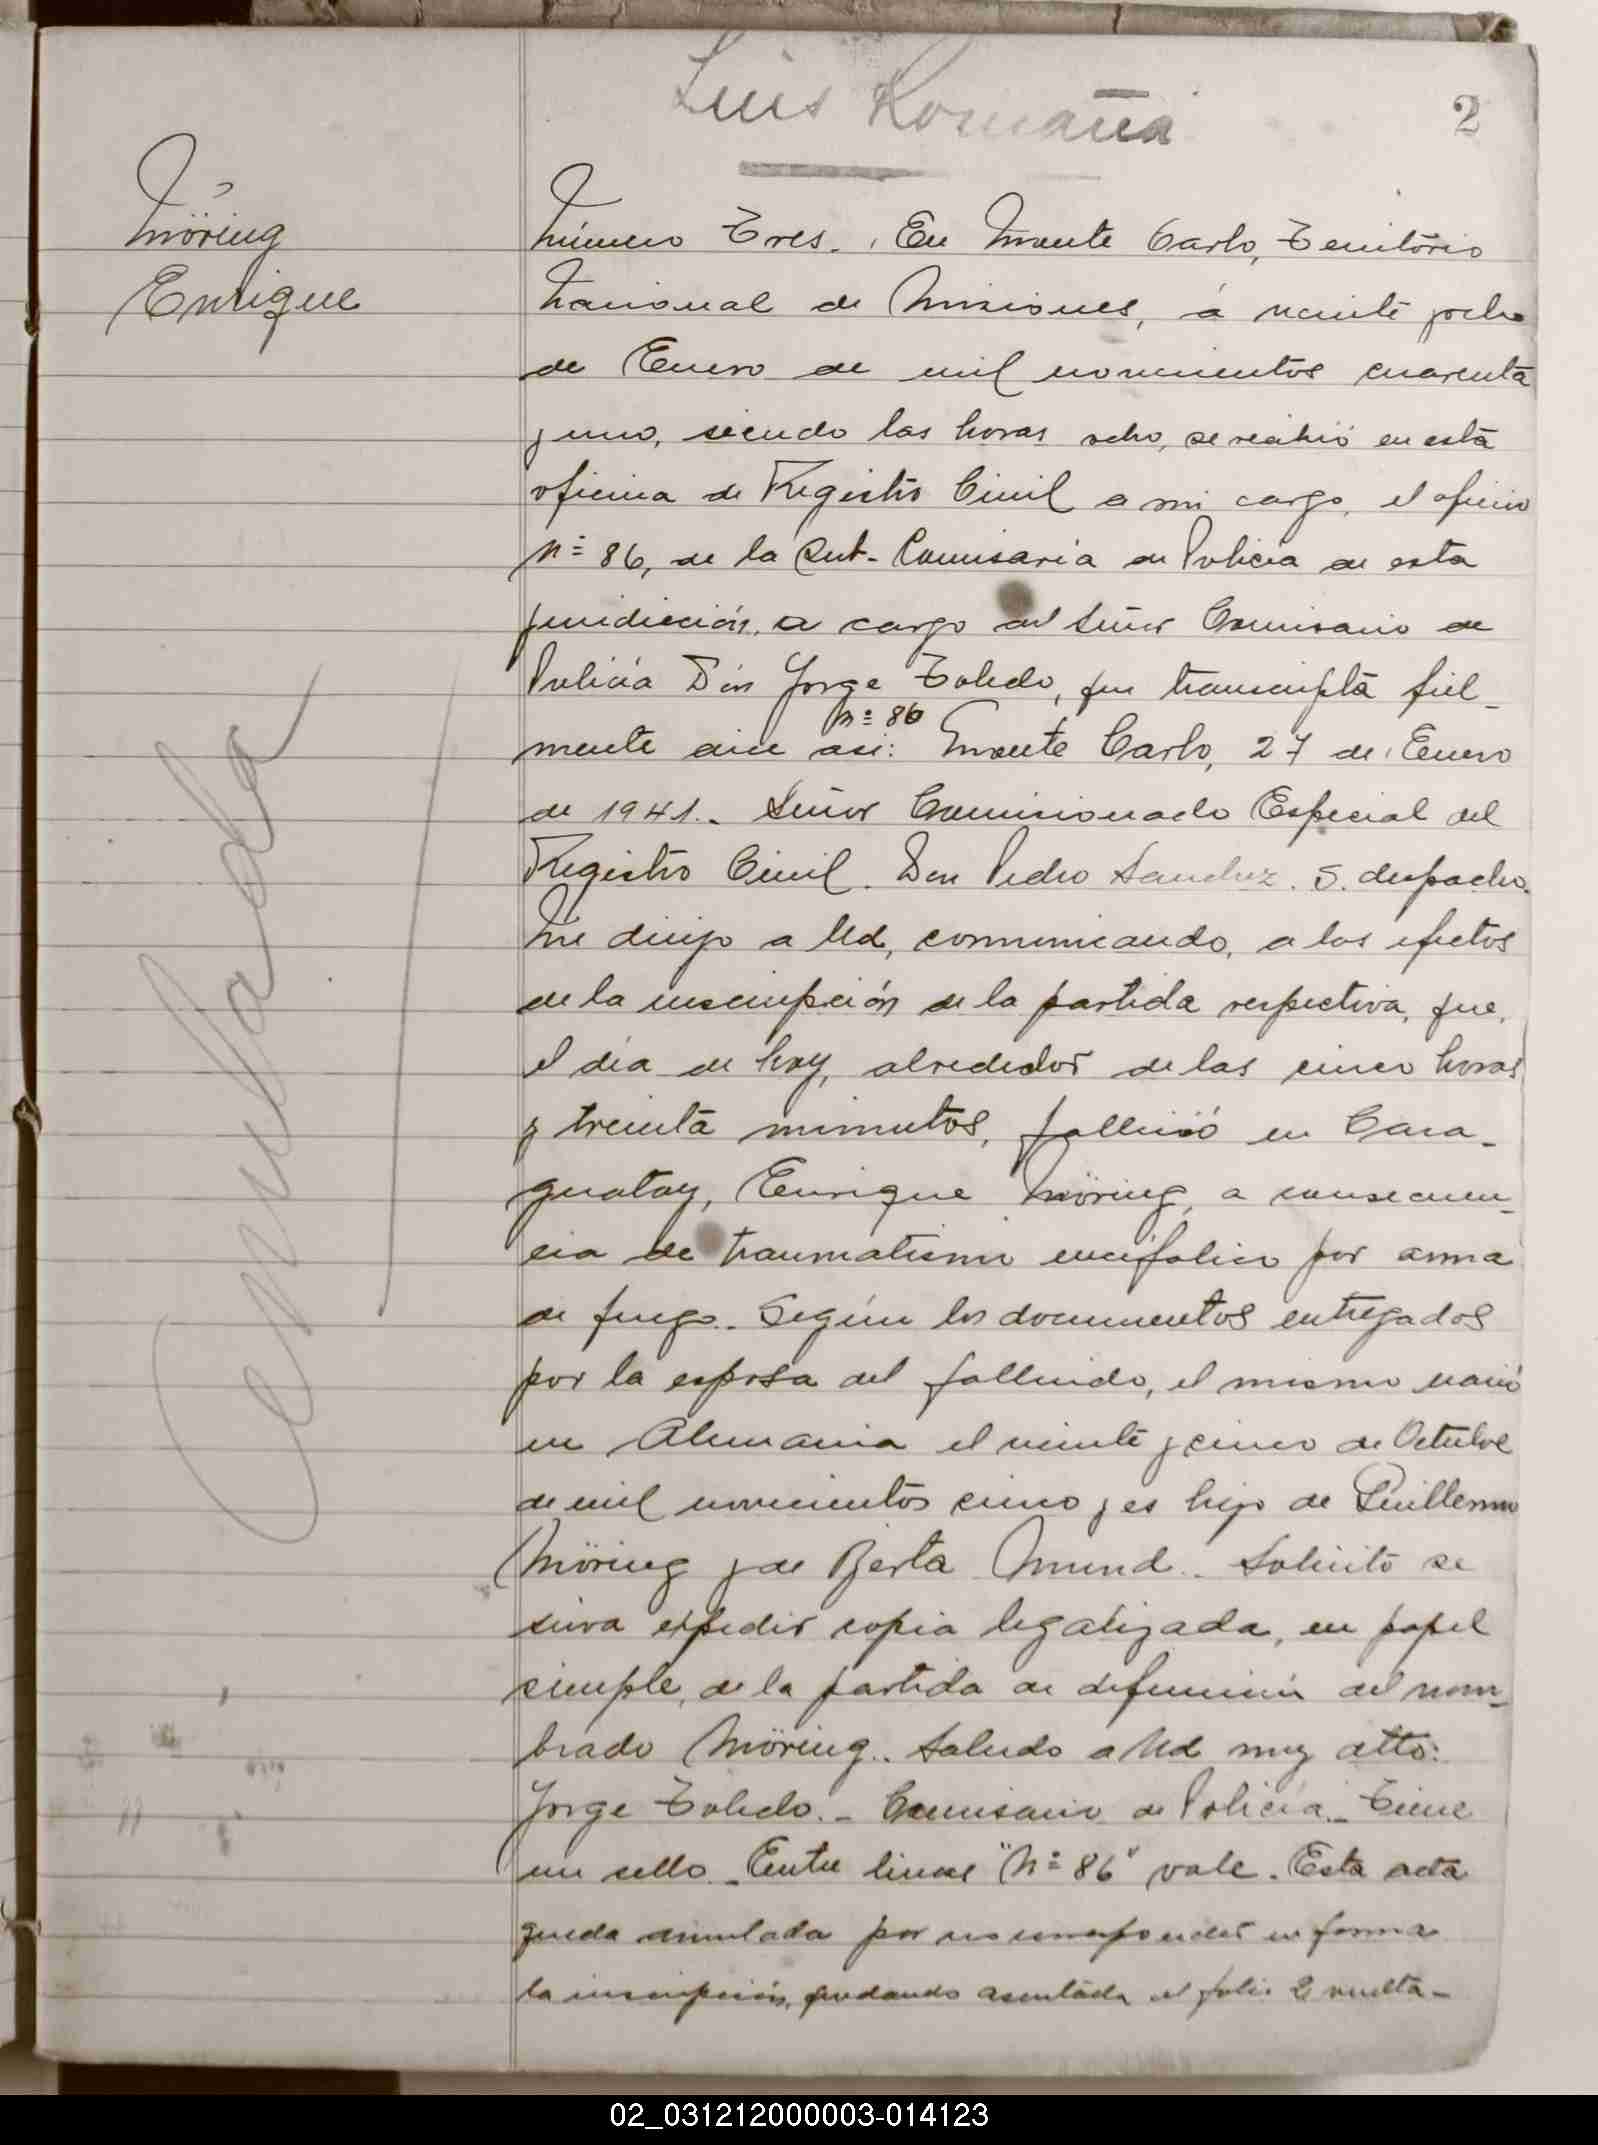 Luis Romaña
2
Möring
Enrique
Anulada
Número Tres. En Monte Carlo, Territorio
Nacional de Misiones, á veinte y ocho
de Enero de mil novecientos cuarenta
y uno, siendo las horas ocho, se recibió en esta
oficina de Registro Civil a mi cargo, el oficio
Nº 86, de la Sub-Comisaría de Policía de esta
juridicción, a cargo del Señor Comisario de
Policía Dón Jorge Toledo, que transcripta fiel-
nº 86
mente dice asi: Monte Carlo, 27 de Enero
de 1941.- Señor Comisionado Especial del
Registro Civil. Don Pedro Sanchez. S. despacho.
Me dirijo a Ud, comunicando, a los efectos
de la inscripción de la partida respectiva, que,
el día de hoy, alrededor de las cinco horas
y treinta minutos, falleció en Cara-
guatay, Enrique Möring, a consecuen-
cia de traumatismo encéfalico por arma
de fuego.- Según los documentos entregados
por la esposa del fallecido, el mismo nació
en Alemania el veinte y cinco de Octubre
de mil novecientos cinco y es hijo de Guillermo
Möring y de Berta Mund.. Solicito se
sirva expedir copia legalizada, en papel
simple, de la partida de defunción del nom-
brado Möring.. Saludo a Ud muy atto:
Jorge Toledo.- Comisario de Policía.- Tiene
un sello.- Entre lineas "Nº 86" vale. Esta acta
queda anulada por no corresponder en forma
la inscripción, quedando asentada al folio 2 vuelta-
02_031212000003-014123